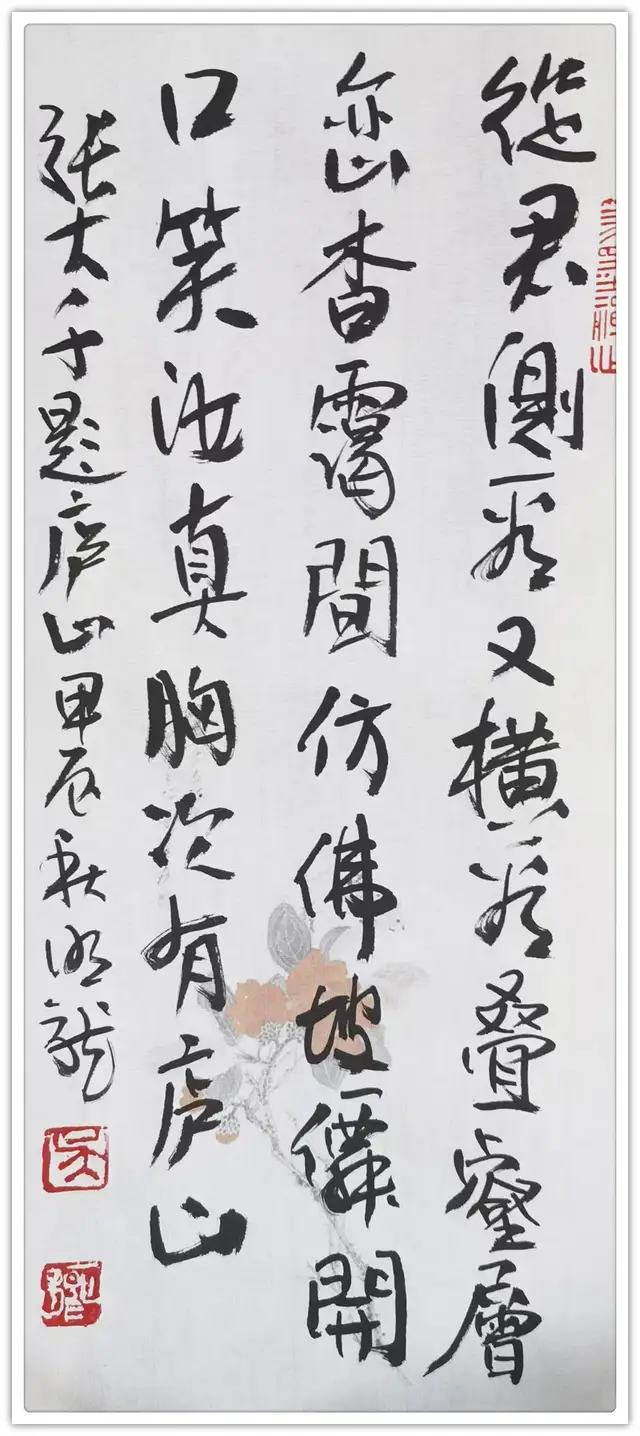 從君側看又橫看叠壑層
峦杳靄間仿佛坡僊開
口笑汝真胸次有庐山
張大千題庐山甲辰秋明龍
吴